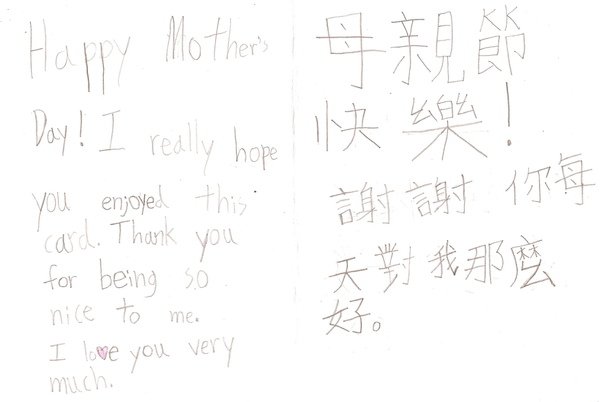 Happy Mother's
Day! I really hope
you enjoyed this
card. Thank you
for being so
nice to me.
I love you very
much.
母親節
快樂!
謝謝你每
天對我那麼
好。